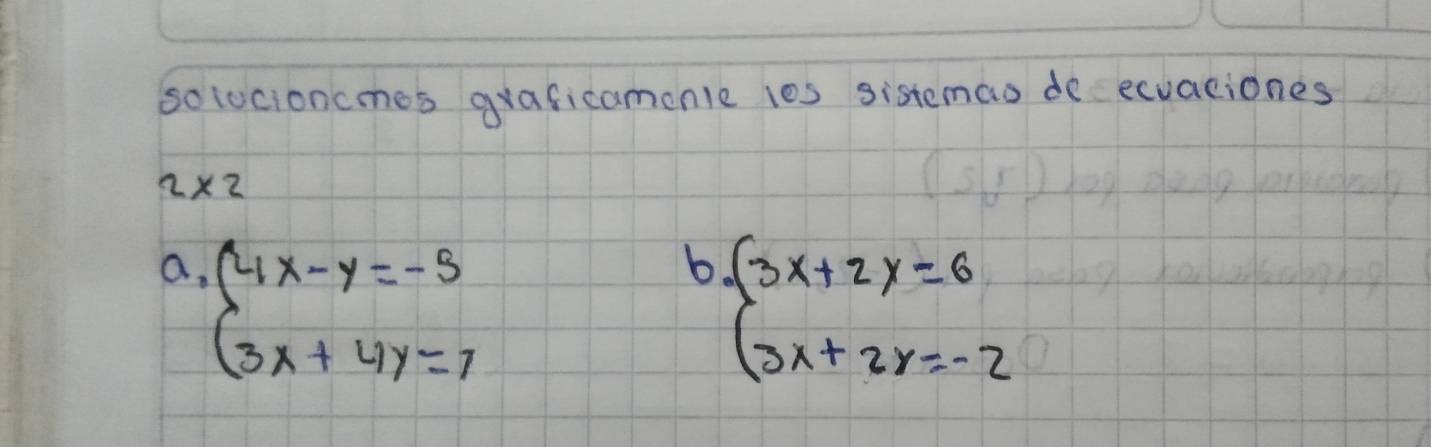 solucionemos graficamente los sistemas de ecuaciones
2x2
a. {4x-y=-5 b. {3x+2y=6
{3x+4y=1 {3x+2y=-2